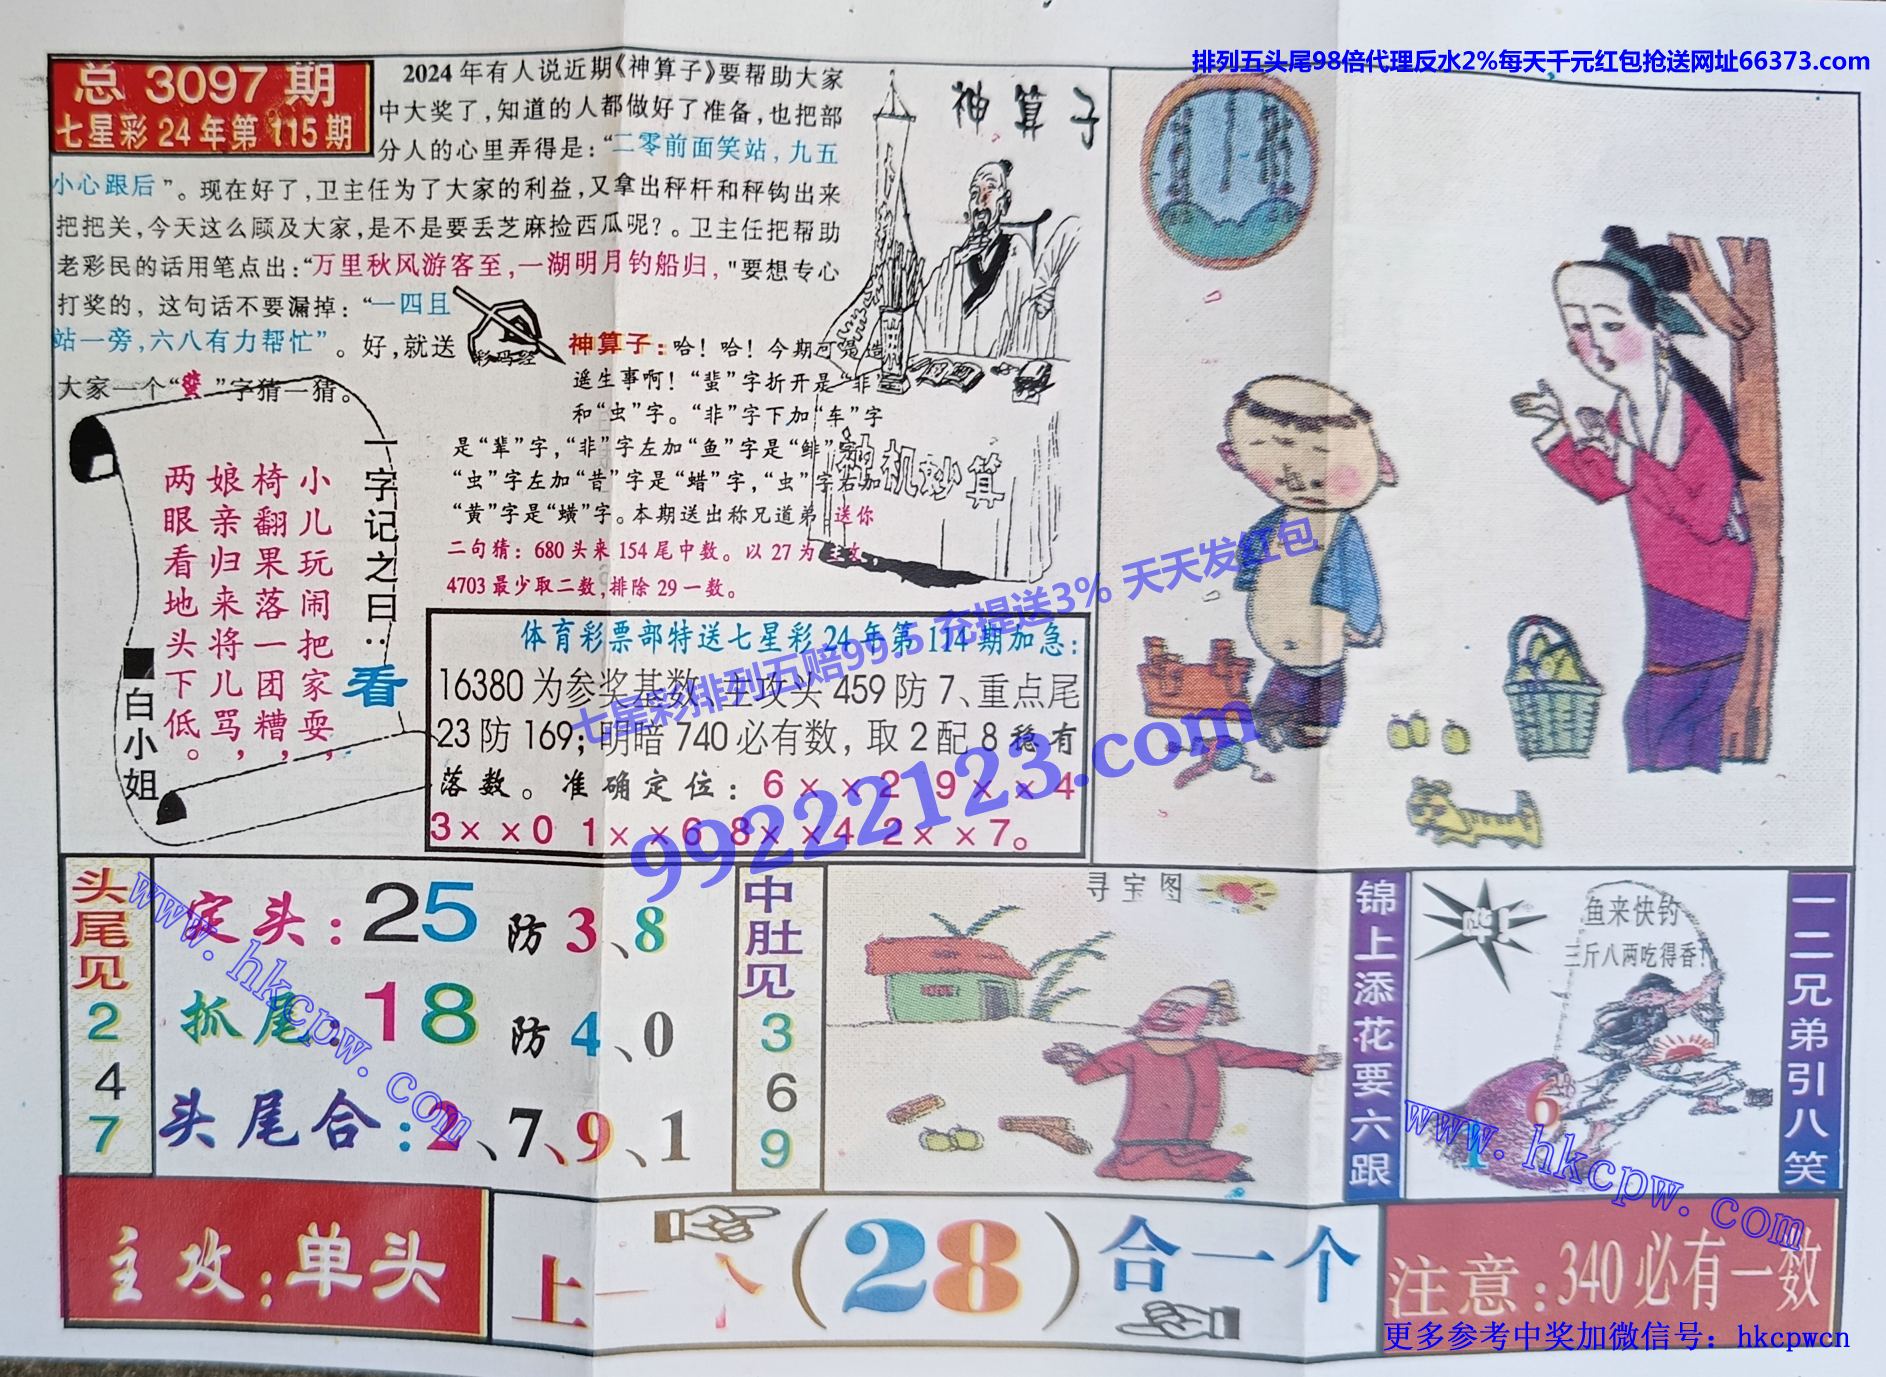 排列五头尾98倍代理反水2%每天千元红包抢送网址66373.com
总 3097 期
七星彩24年第115期
2024年有人说近期《神算子》要帮助大家
中大奖了，知道的人都做好了准备，也把部
分人的心里弄得是：“二零前面笑站，九五
小心跟后”。现在好了，卫主任为了大家的利益，又拿出秤杆和秤钩出来
把把关，今天这么顾及大家，是不是要丢芝麻捡西瓜呢？。卫主任把帮助
老彩民的话用笔点出：“万里秋风游客至，一湖明月钓船归，"要想专心
打奖的，这句话不要漏掉：“一四且
站一旁，六八有力帮忙”。好，就送
大家一个“蜚”字猜一猜。
彩码经
神算子
神算子：哈！哈！今期可是造
遥生事啊！“蜚”字折开是“非”
和“虫”字。“非”字下加“车”字
是“辈”字，“非”字左加“鱼”字是“鲱”字
“虫”字左加“昔”字是“蜡”字，“虫”字右加
“黄”字是“蟥”字。本期送出称兄道弟 送你
二句猜：680头来154尾中数。以27为主攻，
4703最少取二数，排除29一数。
神机妙算
一字记之曰：看
小儿玩闹把家耍，
椅翻果落一团糟，
娘亲归来将儿骂，
两眼看地头下低。
白小姐
体育彩票部特送七星彩24年第114期加急：
16380为参奖基数、主攻头459防7、重点尾
23防169；明暗740必有数，取2配8稳有
落数。准确定位：6××2 9××4
3××0 1××6 8××4 2××7。
七星彩排列五赔99.5 充提送3% 天天发红包
99222123.com
头尾见247
定头：25防3、8
抓尾：18防4、0
头尾合：2、7、9、1
www.hkcpw.com
中肚见369
寻宝图
锦上添花要六跟
鱼来快钓
三斤八两吃得香！
6
1
www.hkcpw.com
一二兄弟引八笑
主攻：单头
上一个（28）合一个
注意：340必有一数
更多参考中奖加微信号：hkcpwcn